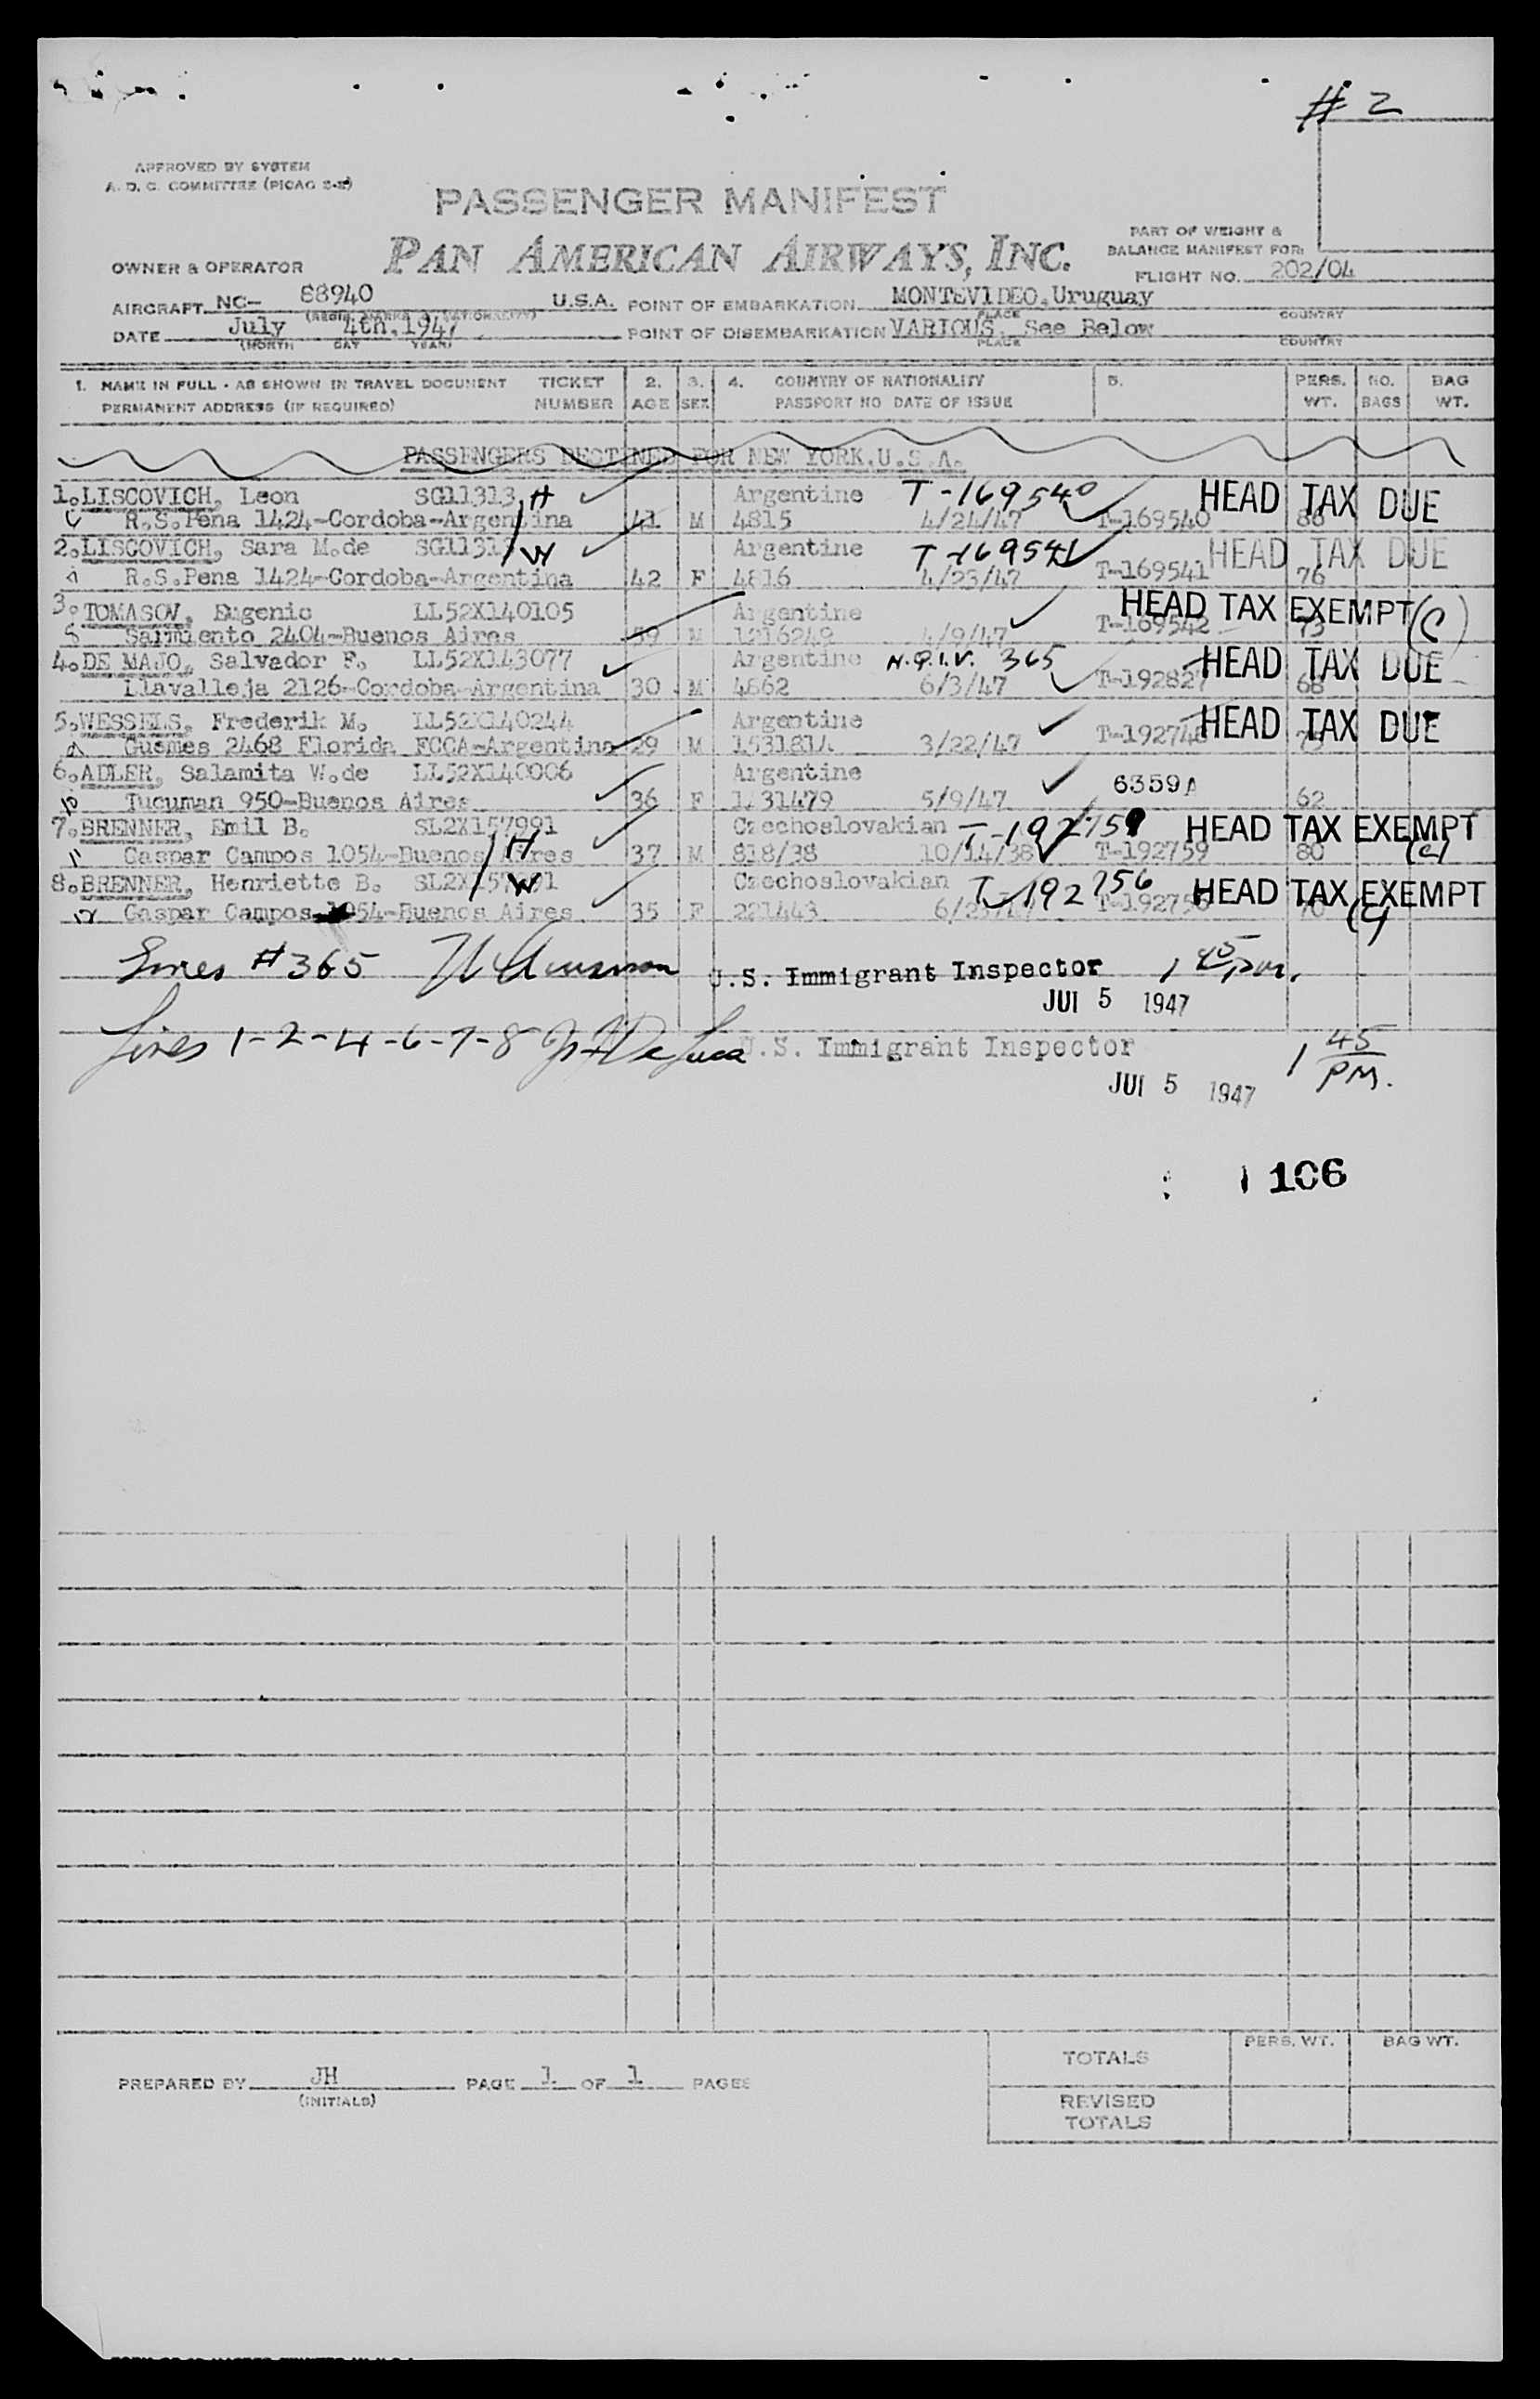 # 2
APPROVED BY SYSTEM
A. D. C. COMMITTEE (PICAO 2-2)
PASSENGER MANIFEST
PAN AMERICAN AIRWAYS, INC.
PART OF WEIGHT &
BALANCE MANIFEST FOR:
FLIGHT NO. 202/04
OWNER & OPERATOR
AIRCRAFT NC- 88940 U.S.A. POINT OF EMBARKATION MONTEVIDEO, Uruguay
PLACE COUNTRY
DATE July 4th, 1947 POINT OF DISEMBARKATION VARIOUS, See Below
(MONTH DAY YEAR) PLACE COUNTRY
1. NAME IN FULL - AS SHOWN IN TRAVEL DOCUMENT TICKET 2. 3. 4. COUNTRY OF NATIONALITY 5. PERS. NO. BAG
PERMANENT ADDRESS (IF REQUIRED) NUMBER AGE SEX PASSPORT NO DATE OF ISSUE WT. BAGS WT.
PASSENGERS DESTINED FOR NEW YORK, U.S.A.
1. LISCOVICH, Leon SG11313 H Argentine T-169540 HEAD TAX DUE
R.S.Pena 1424-Cordoba-Argentina 41 M 4815 4/24/47 T-169540
2. LISCOVICH, Sara M.de W Argentine T-169541 HEAD TAX DUE
R.S.Pena 1424-Cordoba-Argentina 42 F 4816 4/23/47 T-169541 76
3. TOMASOV, Eugenio LL52X140105 Argentine HEAD TAX EXEMPT (C)
Sarmiento 2404-Buenos Aires 59 M 1216249 4/9/47 T-169542 73
4. DE MAJO, Salvador F. LL52X143077 Argentine N.Q.I.V. 365 HEAD TAX DUE
Llavalleja 2126-Cordoba-Argentina 30 M 4862 6/3/47 T-192827 68
5. WESSELS, Frederik M. LL52X140244 Argentine HEAD TAX DUE
Guemes 2468 Florida FCCA-Argentina 29 M 3/22/47
6. ADLER, Salamita W.de LL52X140006 Argentine 6359A
Tucuman 950-Buenos Aires 36 F 5/9/47 62
7. BRENNER, Emil B. SL2X157991 H Czechoslovakian T-192759 HEAD TAX EXEMPT
Gaspar Campos 1054-Buenos Aires 37 M 818/38 10/14/38 T-192759 80 (C)
8. BRENNER, Henriette B. W Czechoslovakian T-192756 HEAD TAX EXEMPT
Gaspar Campos 1054-Buenos Aires 35 F 221443 (C)
Lines # 365 U.S. Immigrant Inspector 1 45 p.m.
JUL 5 1947
Lines 1-2-4-6-7-8 U.S. Immigrant Inspector 1 45 PM.
JUL 5 1947
106
PREPARED BY JH PAGE 1 OF 1 PAGES
(INITIALS)
PERS. WT. BAG WT.
TOTALS
REVISED
TOTALS